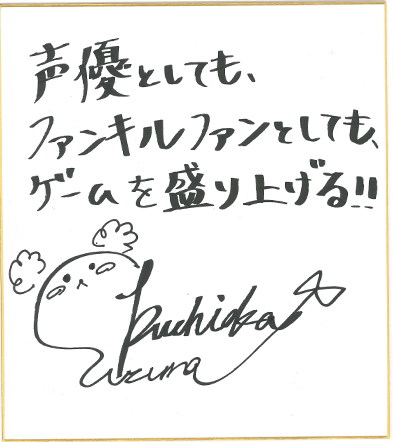 声優としても、
ファンキルファンとしても、
ゲームを盛り上げる!!